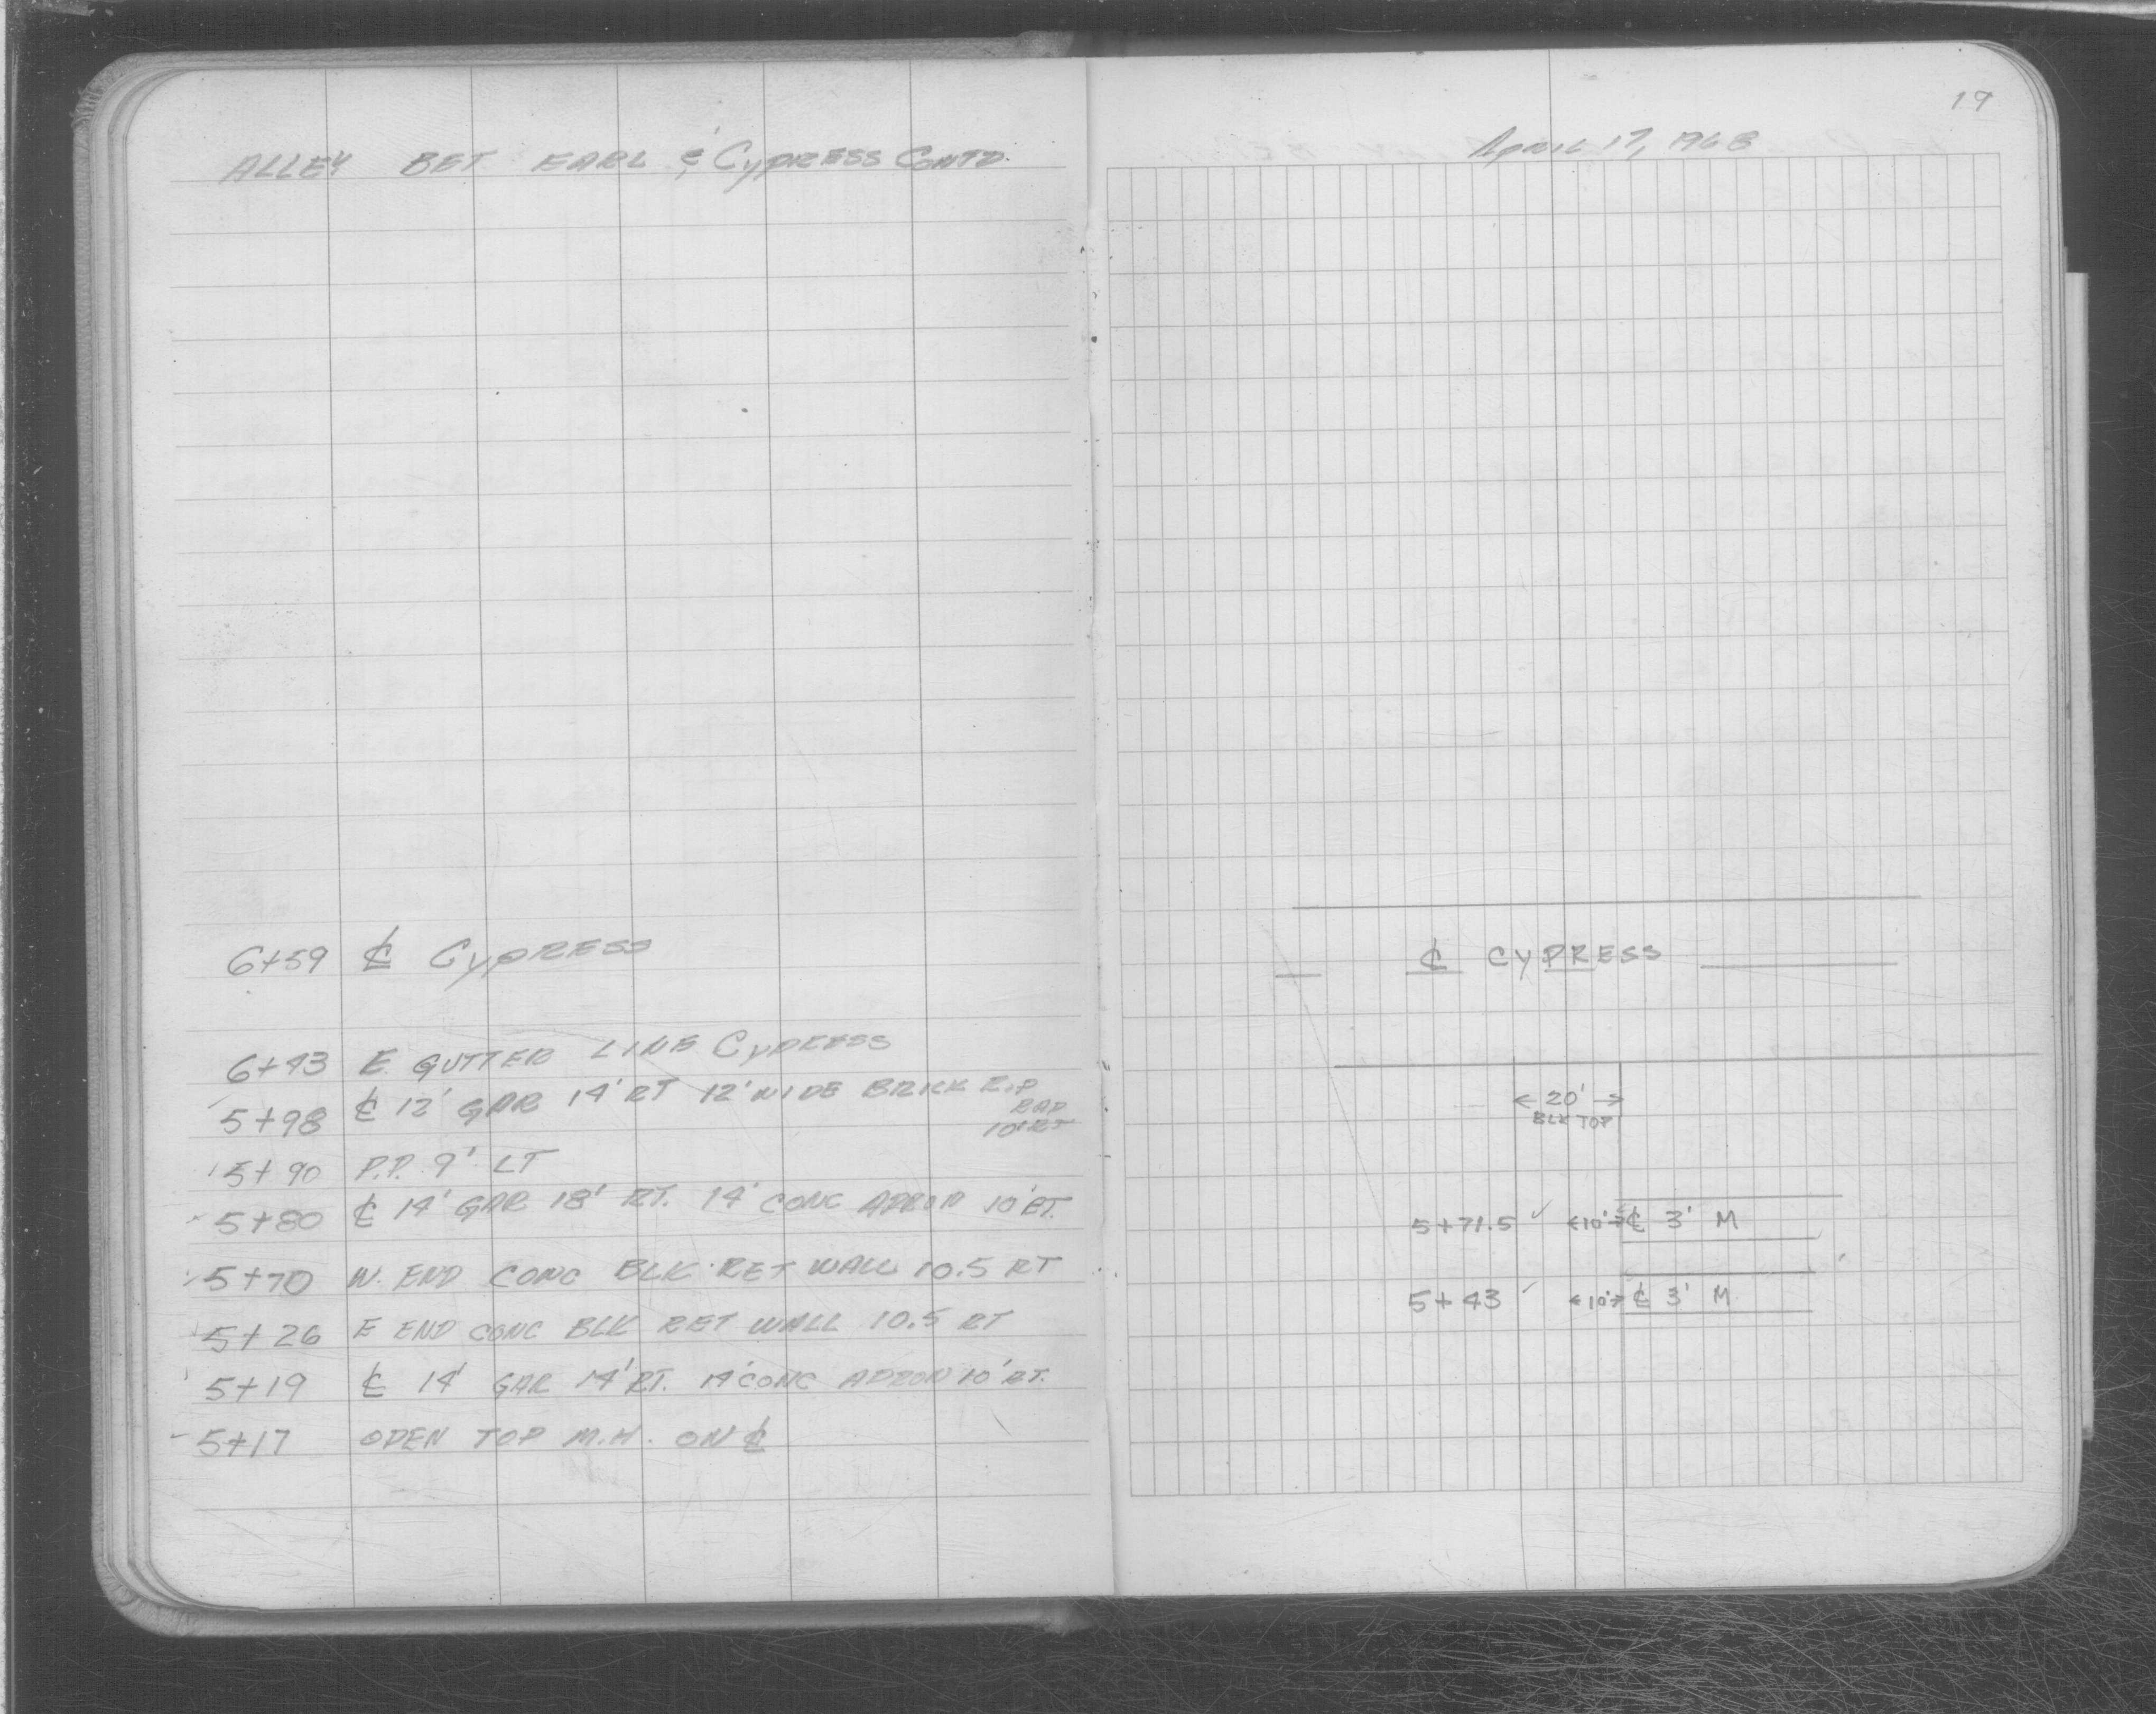 ALLEY BET EARL & CYPRESS CONTD.
6+59 ℄ CYPRESS
6+43 E. GUTTER LINE CYPRESS
5+98 ℄ 12' GAR 14' RT 12' WIDE BRICK
BAD
10' RT
5+90 P.P. 9' LT
5+80 ℄ 14' GAR 18' RT. 14' CONC APRON 10' RT.
5+70 W. END CONC BLK RET WALL 10.5 RT
5+26 E END CONC BLK RET WALL 10.5 RT
5+19 ℄ 14' GAR 14' RT. 14' CONC APRON 10' RT.
5+17 OPEN TOP M.H. ON ℄
19
APRIL 17, 1968
℄ CYPRESS
← 20' →
BLK TOP
5+71.5 ✓ ←10'→ ℄ 3' M
5+43 ✓ ←10'→ ℄ 3' M